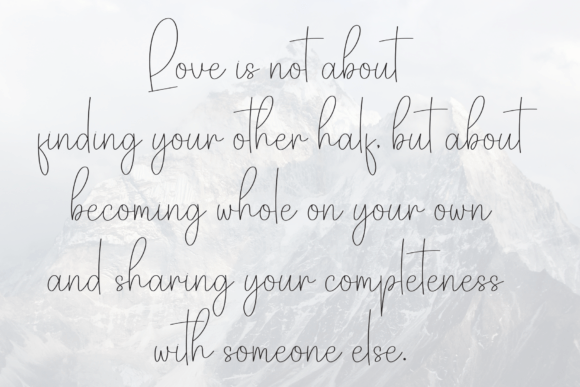 Love is not about
finding your other half, but about
becoming whole on your own
and sharing your completeness
with someone else.